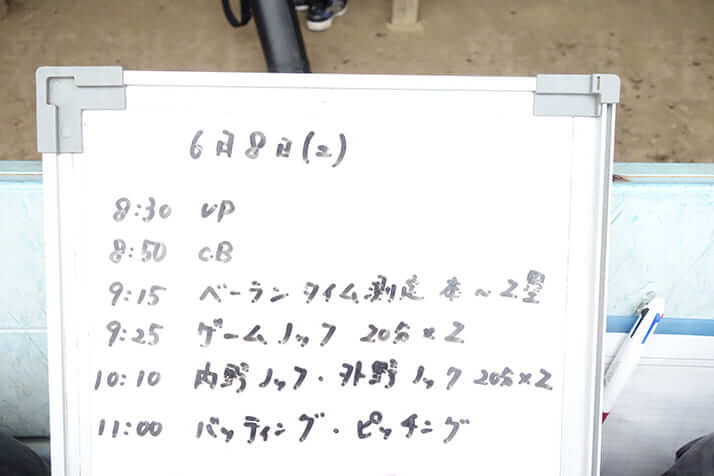 6月8日(土)
8:30 UP
8:50 C.B
9:15 ベーラン タイム測定 本~2塁
9:25 ゲームノック 20分×2
10:10 内野ノック・外野ノック 20分×2
11:00 バッティング・ピッチング